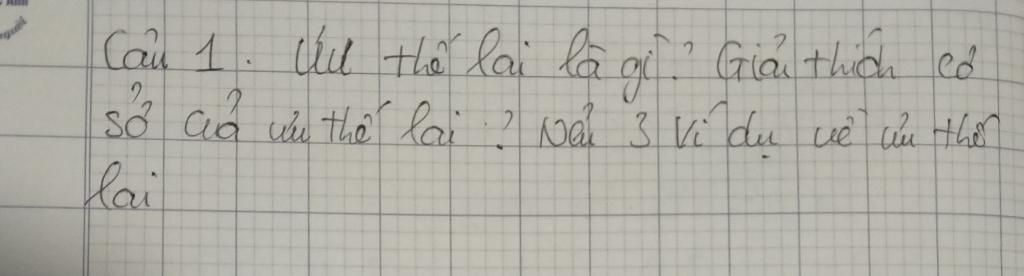 Câu 1. Ưu thế lai là gì? Giải thích cơ
sở của ưu thế lai? Nêu 3 ví dụ về ưu thế
lai